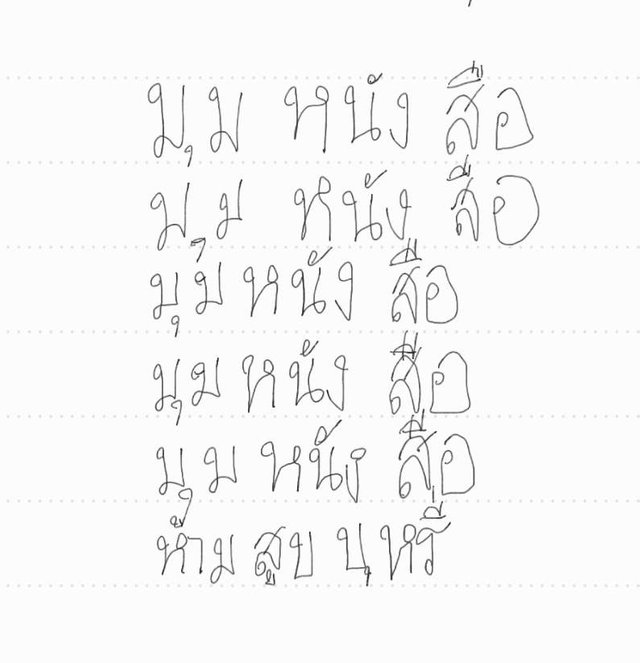 มุม หนัง สือ
มุม หนัง สือ
มุม หนัง สือ
มุม หนัง สือ
มุม หนัง สือ
ห้าม สูบ บุหรี่